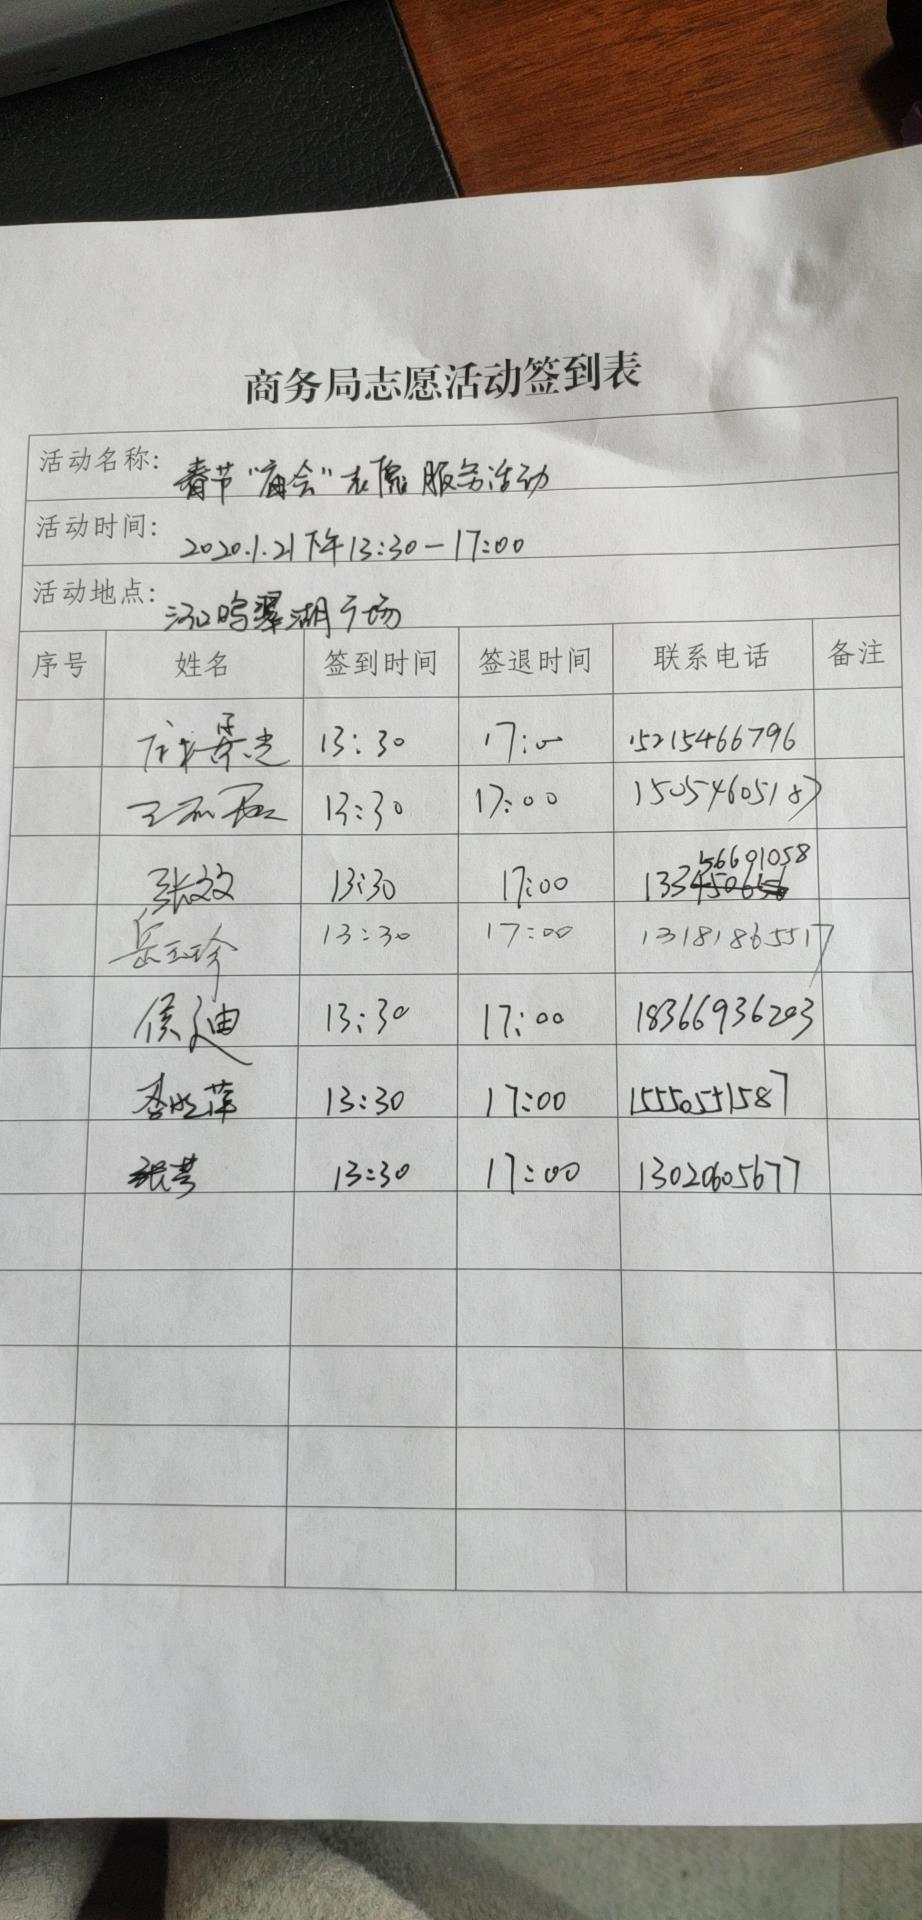 商务局志愿活动签到表
活动名称: 春节"庙会"志愿服务活动
活动时间: 2020.1.21下午13:30-17:00
活动地点: 湖广场
序号 姓名 签到时间 签退时间 联系电话 备注
13:30 17:00 15215466796
13:30 17:00 15054605187
张效 13:30 17:00 56691058 133
岳玉珍 13:30 17:00 13181865517
侯迪 13:30 17:00 18366936203
李晓萍 13:30 17:00 15550551587
张芳 13:30 17:00 13020605677